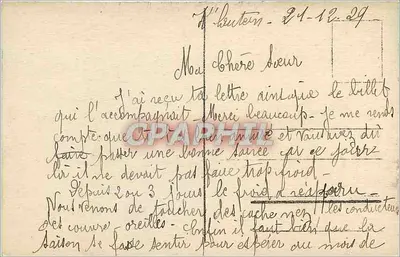 21-12-29
Ma Chère Sœur
J'ai reçu ta lettre ainsi que le billet
qui l'accompagnait. Merci beaucoup. Je me rends
compte que
CPARPHIL
et vous avez dû
faire passer une bonne soirée car ce jour
là il ne devait pas faire trop froid.
Depuis 2 ou 3 jours le froid a reparu.
Nous venons de toucher des cache nez
les conducteurs
des couvre oreilles. Enfin il faut bien que la
saison se fasse sentir pour espérer au mois de